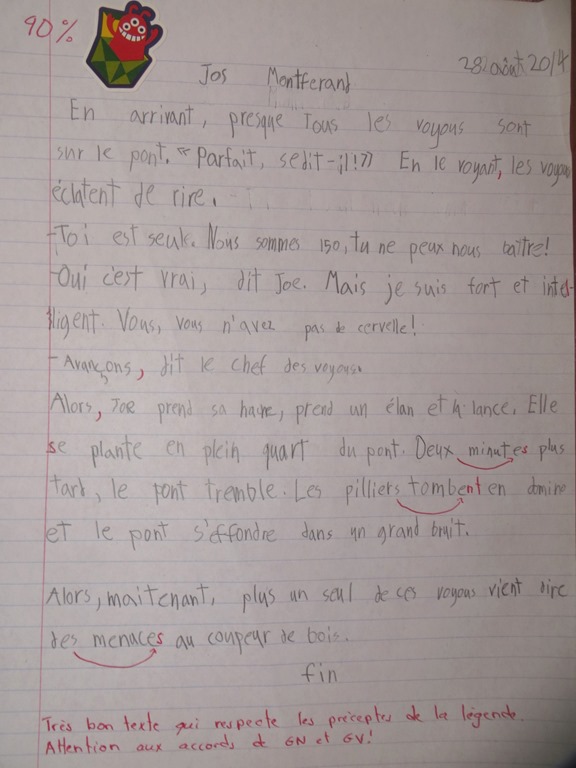 90%
28 août 2014
Jos Montferand
En arrivant, presque tous les voyous sont
sur le pont. «Parfait, sedit-il!» En le voyant, les voyous
éclatent de rire.
-Toi est seule. Nous sommes 150, tu ne peux nous baître!
-Oui c'est vrai, dit Joe. Mais je suis fort et intel-
ligent. Vous, vous n'avez pas de cervelle!
- Avançons, dit le chef des voyous.
Alors, Joe prend sa hache, prend un élan et la lance. Elle
se plante en plein quart du pont. Deux minutes plus
tard, le pont tremble. Les pilliers tombent en domino
et le pont s'éffondre dans un grand bruit.
Alors, maitenant, plus un seul de ces voyous vient dire
des menaces au coupeur de bois.
fin
Très bon texte qui respecte les préceptes de la légende.
Attention aux accords de GN et GV!